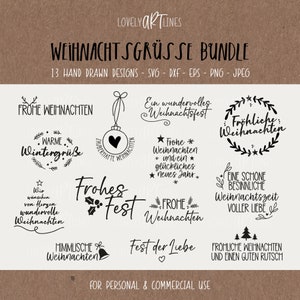 LOVELY ARTLINES
WEIHNACHTSGRÜSSE BUNDLE
13 HAND DRAWN DESIGNS - SVG - DXF - EPS - PNG - JPEG
FROHE WEIHNACHTEN
ZAUBERHAFTE WEIHNACHTEN
Ein wundervolles
Weihnachtsfest
Fröhliche
Weihnachten
WARME
Wintergrüße
Frohe
Weihnachten
und ein
glückliches
neues Jahr
EINE SCHÖNE
BESINNLICHE
Weihnachtszeit
VOLLER LIEBE
Wir
wünschen
von Herzen
wundervolle
Weihnachten
Frohes
Fest
FROHE
Weihnachten
HIMMLISCHE
Weihnachten
Fest der Liebe
FRÖHLICHE WEIHNACHTEN
UND EINEN GUTEN RUTSCH
FOR PERSONAL & COMMERCIAL USE